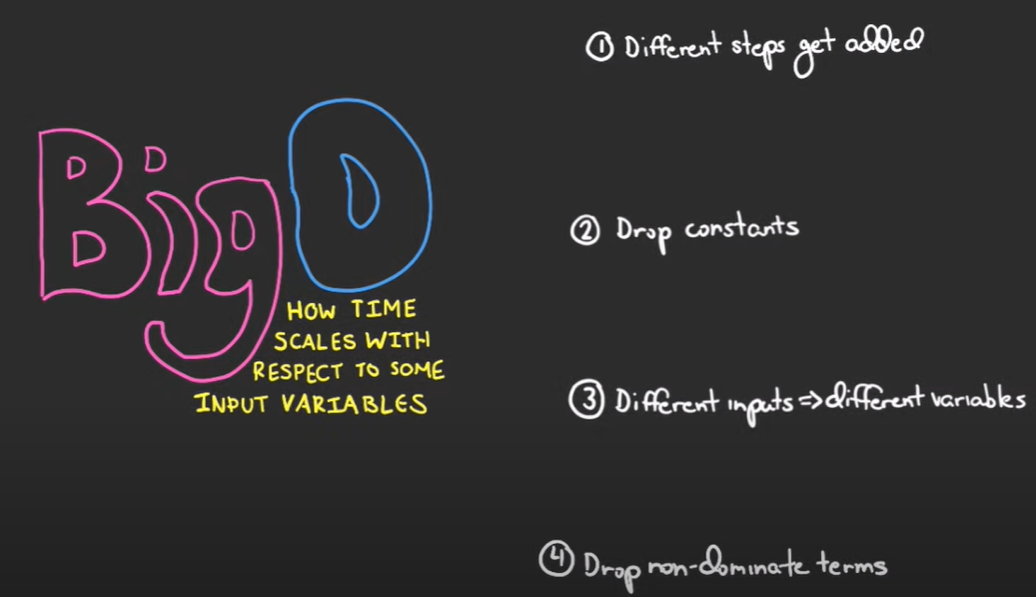 Big O
HOW TIME
SCALES WITH
RESPECT TO SOME
INPUT VARIABLES
① Different steps get added
② Drop constants
③ Different inputs => different variables
④ Drop non-dominate terms